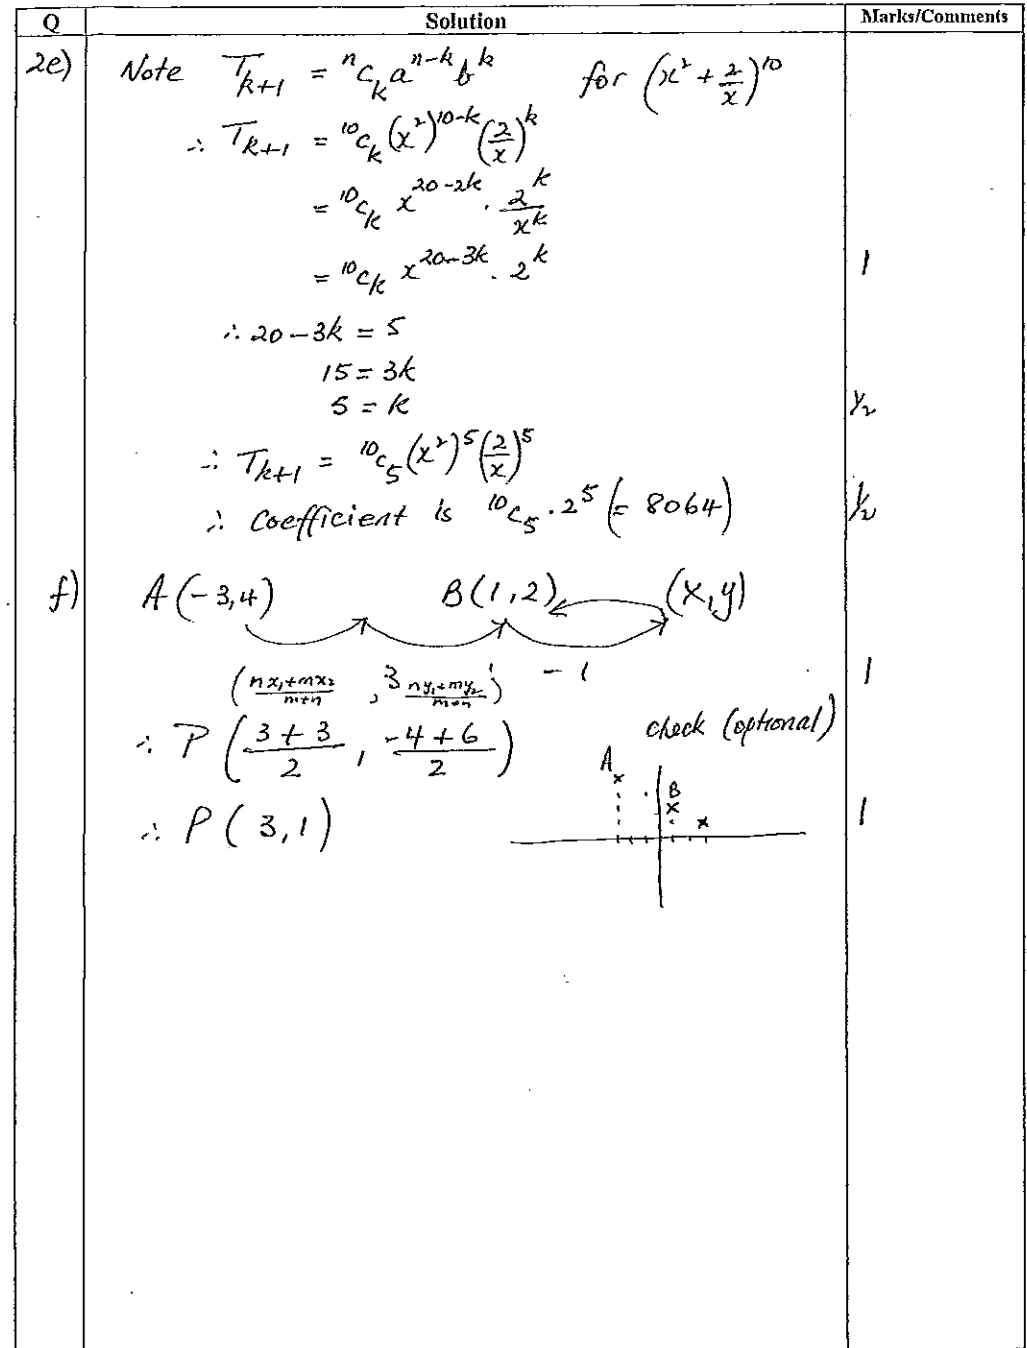 Q Solution Marks/Comments
2e) Note T_{k+1} = ⁿC_k a^{n-k} b^k for (x² + 2/x)^{10}
∴ T_{k+1} = ¹⁰C_k (x²)^{10-k} (2/x)^k
= ¹⁰C_k x^{20-2k} . 2^k/x^k
= ¹⁰C_k x^{20-3k} . 2^k 1
∴ 20-3k = 5
15 = 3k
5 = k 1/2
∴ T_{k+1} = ¹⁰C_5 (x²)^5 (2/x)^5
∴ Coefficient is ¹⁰C_5 . 2^5 (= 8064) 1/2
f) A(-3,4) B(1,2) (x,y)
((nx₁+mx₂)/(m+n) , 3 (ny₁+my₂)/(m+n)) -1 1
∴ P((3+3)/2, (-4+6)/2) check (optional)
A
B
∴ P(3,1) 1